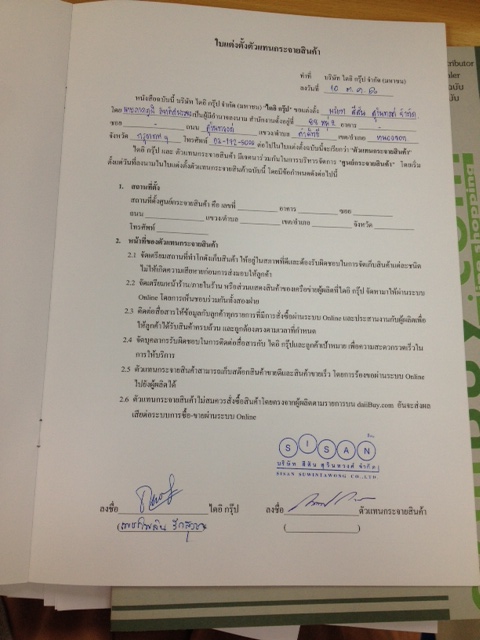 ใบแต่งตั้งตัวแทนกระจายสินค้า
ทำที่ บริษัท ไดอิ กรุ๊ป จำกัด (มหาชน)
ลงวันที่ 10 ต.ค.
หนังสือฉบับนี้ บริษัท ไดอิ กรุ๊ป จำกัด (มหาชน) "ไดอิ กรุ๊ป" ขอแต่งตั้ง บริษัท สีสัน สุวินทวงศ์ จำกัด
โดย เป็นผู้มีอำนาจลงนาม สำนักงานตั้งอยู่ที่ อาคาร
ซอย ถนน สุวินทวงศ์ แขวง/ตำบล ลำผักชี เขต/อำเภอ หนองจอก
จังหวัด กรุงเทพฯ โทรศัพท์ ต่อไปในใบแต่งตั้งฉบับนี้จะเรียกว่า "ตัวแทนกระจายสินค้า"
ไดอิ กรุ๊ป และ ตัวแทนกระจายสินค้า มีเจตนาร่วมกันในการบริหารจัดการ "ศูนย์กระจายสินค้า" โดยเริ่ม
ตั้งแต่วันที่ลงนามในใบแต่งตั้งตัวแทนกระจายสินค้าฉบับนี้ โดยมีข้อกำหนดดังต่อไปนี้
1. สถานที่ตั้ง
สถานที่ตั้งศูนย์กระจายสินค้า คือ เลขที่ อาคาร ซอย
ถนน แขวง/ตำบล เขต/อำเภอ จังหวัด
โทรศัพท์
2. หน้าที่ของตัวแทนกระจายสินค้า
2.1 จัดเตรียมสถานที่ทำโกดังเก็บสินค้า ให้อยู่ในสภาพที่ดีและต้องรับผิดชอบในการจัดเก็บสินค้าแต่ละชนิด
ไม่ให้เกิดความเสียหายก่อนการส่งมอบให้ลูกค้า
2.2 จัดเตรียมหน้าร้าน/ภายในร้าน หรือส่วนแสดงสินค้าของเครือข่ายผู้ผลิตที่ไดอิ กรุ๊ป จัดหามาให้ผ่านระบบ
Online โดยการเห็นชอบร่วมกันทั้งสองฝ่าย
2.3 ติดต่อสื่อสารให้ข้อมูลกับลูกค้าทุกรายการที่มีการสั่งซื้อผ่านระบบ Online และประสานงานกับผู้ผลิตเพื่อ
ให้ลูกค้าได้รับสินค้าครบถ้วน และถูกต้องตรงตามเวลาที่กำหนด
2.4 จัดบุคลากรรับผิดชอบในการติดต่อสื่อสารกับ ไดอิ กรุ๊ปและลูกค้าเป้าหมาย เพื่อความสะดวกรวดเร็วใน
การให้บริการ
2.5 ตัวแทนกระจายสินค้าสามารถเก็บสต๊อกสินค้าขายดีและสินค้าขายเร็ว โดยการร้องขอผ่านระบบ Online
ไปยังผู้ผลิตได้
2.6 ตัวแทนกระจายสินค้าไม่สมควรสั่งซื้อสินค้าโดยตรงจากผู้ผลิตตามรายการบน daiiBuy.com อันจะส่งผล
เสียต่อระบบการซื้อ-ขายผ่านระบบ Online
SISAN
บริษัท สีสัน สุวินทวงศ์ จำกัด
SISAN SUWINTAWONG CO.,LTD.
ลงชื่อ ไดอิ กรุ๊ป ลงชื่อ ตัวแทนกระจายสินค้า